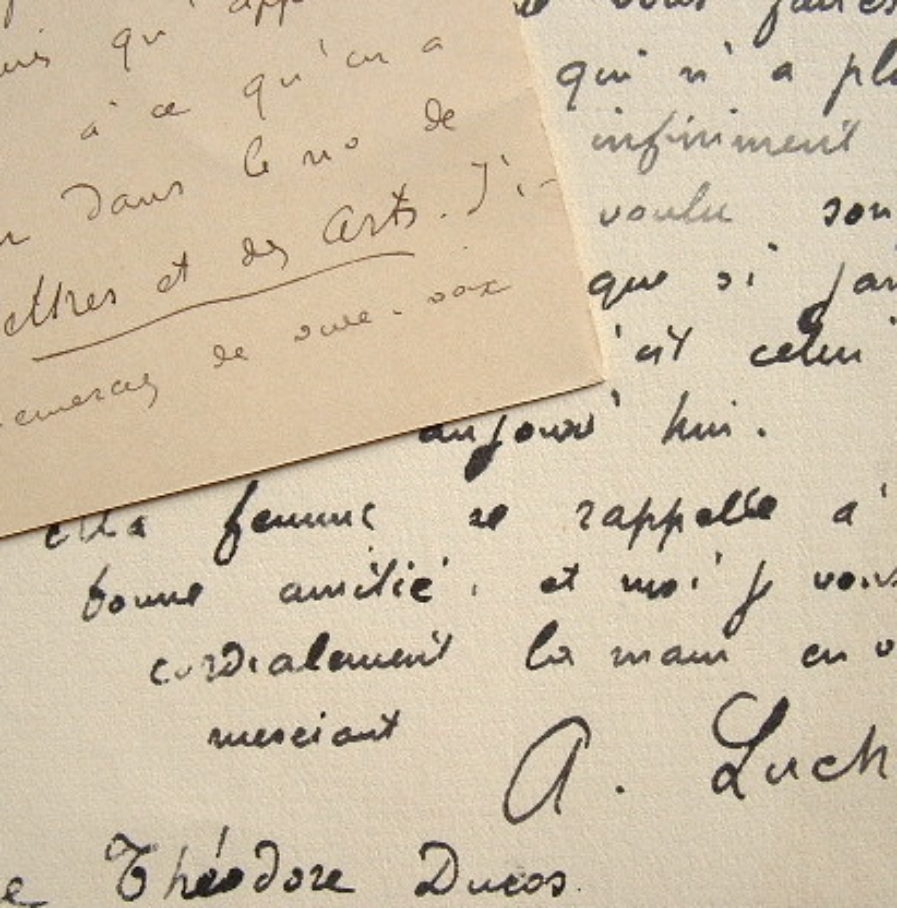 qu'app
à ce qu'on a
dans le no de
ettres et des Arts. J'i-
de vive-voix
vous faites
qui n'a plu
infiniment
voulu son
que si j'ai
celui
aujourd'hui.
femme se rappelle à
bonne amitié, et moi je vous
cordialement la main en v
merciant
A. Luch
e Théodore Ducos